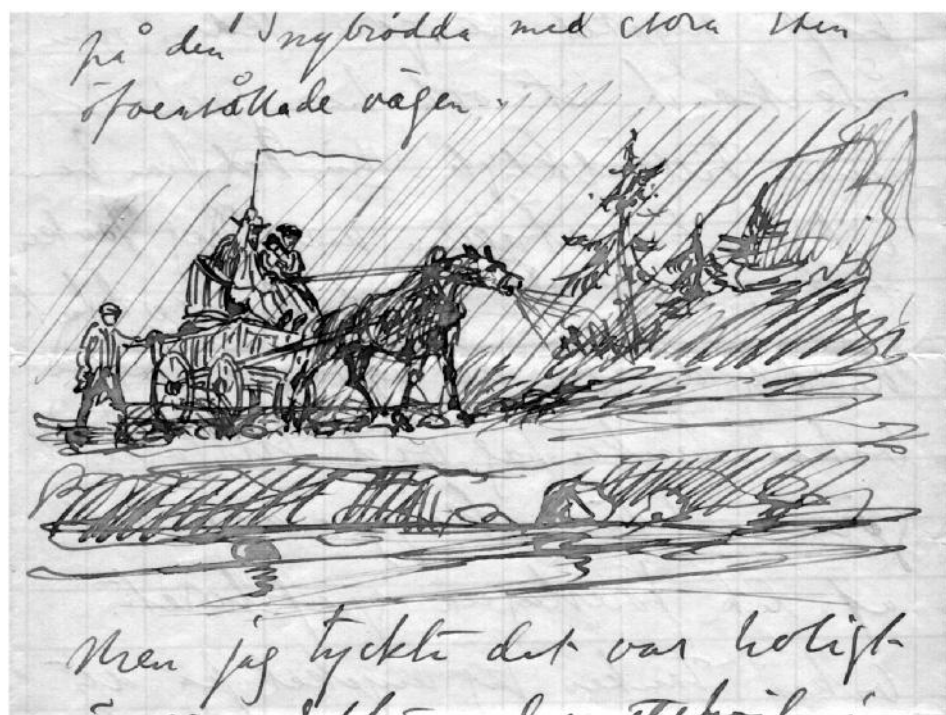 på den nybrödda med stora sten
öfversållade vägen.
Men jag tyckte det var roligt